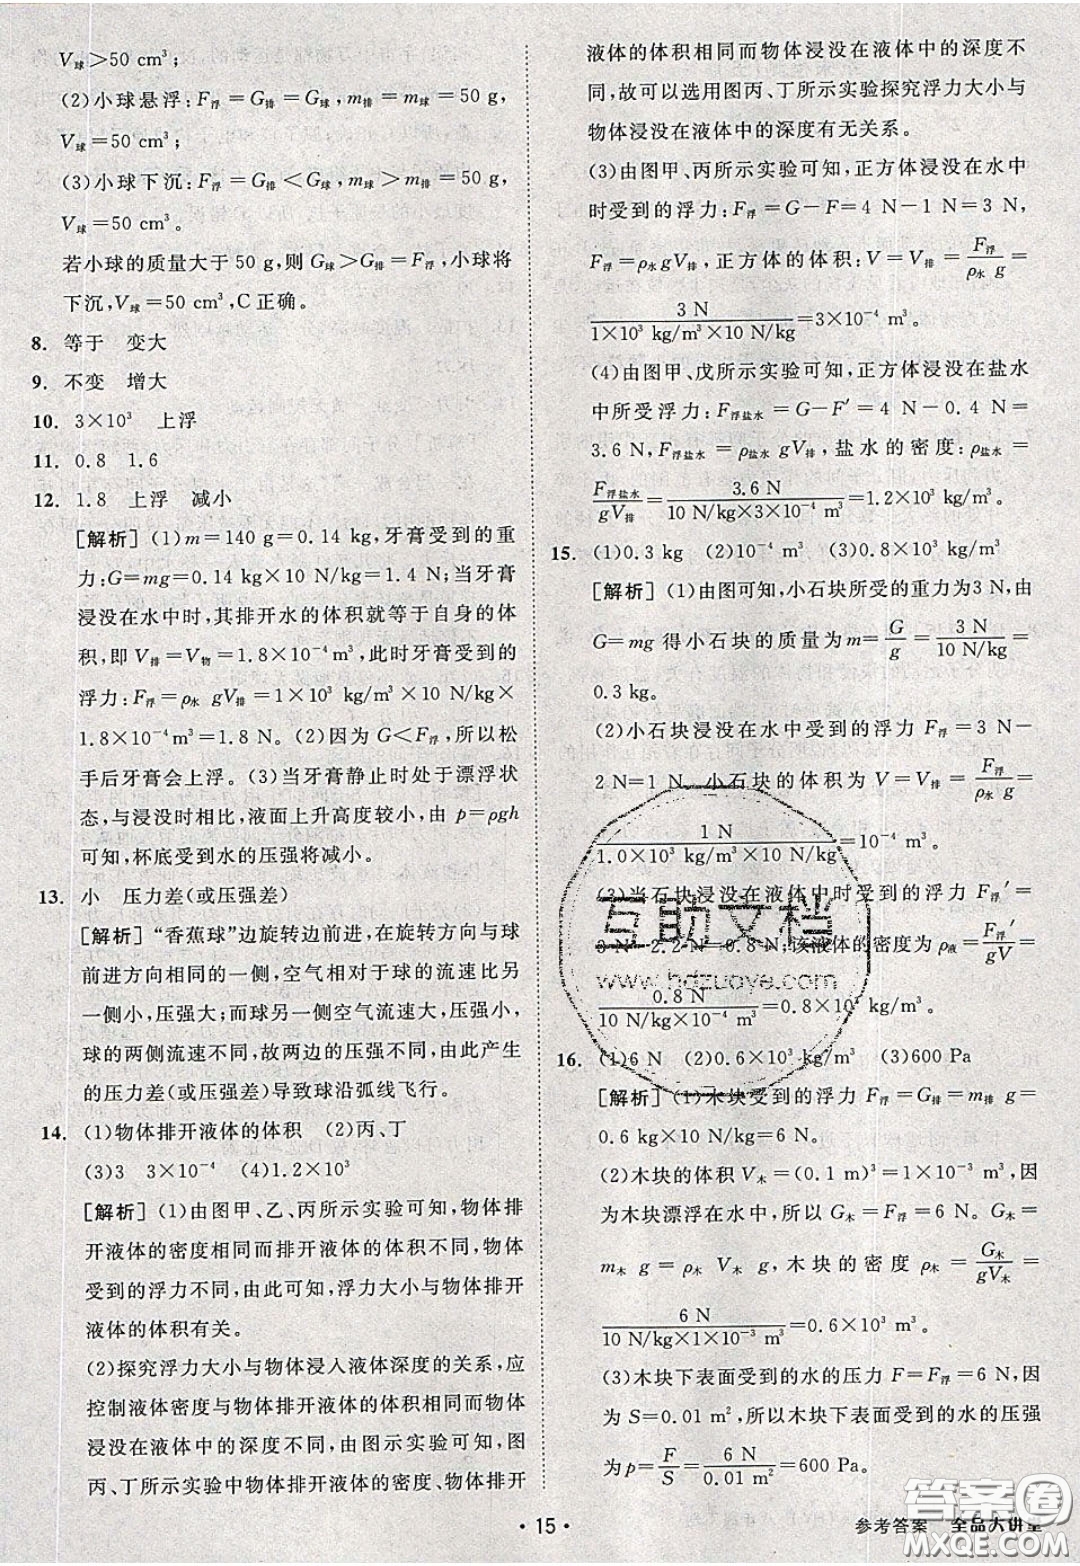 V球＞50 cm³；
(2)小球悬浮：F浮＝G排＝G球，m排＝m球＝50 g，
V球＝50 cm³；
(3)小球下沉：F浮＝G排＜G球，m球＞m排＝50 g，
V球＝50 cm³。
若小球的质量大于 50 g，则 G球＞G排＝F浮，小球将
下沉，V球＝50 cm³，C 正确。
8. 等于　变大
9. 不变　增大
10. 3×10³　上浮
11. 0.8　1.6
12. 1.8　上浮　减小
[解析] (1)m＝140 g＝0.14 kg，牙膏受到的重
力：G＝mg＝0.14 kg×10 N/kg＝1.4 N；当牙膏
浸没在水中时，其排开水的体积就等于自身的体
积，即 V排＝V物＝1.8×10⁻⁴m³，此时牙膏受到的
浮力：F浮＝ρ水 gV排＝1×10³ kg/m³×10 N/kg×
1.8×10⁻⁴m³＝1.8 N。(2)因为 G＜F浮，所以松
手后牙膏会上浮。(3)当牙膏静止时处于漂浮状
态，与浸没时相比，液面上升高度较小，由 p＝ρgh
可知，杯底受到水的压强将减小。
13. 小　压力差(或压强差)
[解析] “香蕉球”边旋转边前进，在旋转方向与球
前进方向相同的一侧，空气相对于球的流速比另
一侧小，压强大；而球另一侧空气流速大，压强小，
球的两侧流速不同，故两边的压强不同，由此产生
的压力差(或压强差)导致球沿弧线飞行。
14. (1)物体排开液体的体积　(2)丙、丁
(3)3　3×10⁻⁴　(4)1.2×10³
[解析] (1)由图甲、乙、丙所示实验可知，物体排
开液体的密度相同而排开液体的体积不同，物体
受到的浮力不同，由此可知，浮力大小与物体排开
液体的体积有关。
(2)探究浮力大小与物体浸入液体深度的关系，应
控制液体密度与物体排开液体的体积相同而物体
浸没在液体中的深度不同，由图示实验可知，图
丙、丁所示实验中物体排开液体的密度、物体排开
液体的体积相同而物体浸没在液体中的深度不
同，故可以选用图丙、丁所示实验探究浮力大小与
物体浸没在液体中的深度有无关系。
(3)由图甲、丙所示实验可知，正方体浸没在水中
时受到的浮力：F浮＝G－F＝4 N－1 N＝3 N，由
F浮＝ρ水 gV排，正方体的体积：V＝V排＝F浮/(ρ水 g)＝
3 N/(1×10³ kg/m³×10 N/kg)＝3×10⁻⁴ m³。
(4)由图甲、戊所示实验可知，正方体浸没在盐水
中所受浮力：F浮盐水＝G－F′＝4 N－0.4 N＝
3.6 N，F浮盐水＝ρ盐水 gV排，盐水的密度：ρ盐水＝
F浮盐水/(gV排)＝3.6 N/(10 N/kg×3×10⁻⁴ m³)＝1.2×10³ kg/m³。
15. (1)0.3 kg　(2)10⁻⁴ m³　(3)0.8×10³ kg/m³
[解析] (1)由图可知，小石块所受的重力为3 N，由
G＝mg 得小石块的质量为 m＝G/g＝3 N/(10 N/kg)＝
0.3 kg。
(2)小石块浸没在水中受到的浮力 F浮＝3 N－
2 N＝1 N，小石块的体积为 V＝V排＝F浮/(ρ水 g)＝
1 N/(1.0×10³ kg/m³×10 N/kg)＝10⁻⁴ m³。
(3)当石块浸没在液体中时受到的浮力 F浮′＝
3 N－2.2 N＝0.8 N，该液体的密度为 ρ液＝F浮′/(gV)＝
0.8 N/(10 N/kg×10⁻⁴ m³)＝0.8×10³ kg/m³。
16. (1)6 N　(2)0.6×10³ kg/m³　(3)600 Pa
[解析] (1)木块受到的浮力：F浮＝G排＝m排 g＝
0.6 kg×10 N/kg＝6 N。
(2)木块的体积 V木＝(0.1 m)³＝1×10⁻³ m³，因
为木块漂浮在水中，所以 G木＝F浮＝6 N。G木＝
m木 g＝ρ木 V木 g，木块的密度 ρ木＝G木/(gV木)＝
6 N/(10 N/kg×1×10⁻³ m³)＝0.6×10³ kg/m³。
(3)木块下表面受到的水的压力 F＝F浮＝6 N，因
为 S＝0.01 m²，所以木块下表面受到的水的压强
为 p＝F/S＝6 N/(0.01 m²)＝600 Pa。
互助文档
www.hdzuoye.com
·15·
参考答案　全品大讲堂
答案圈
MXQE.COM